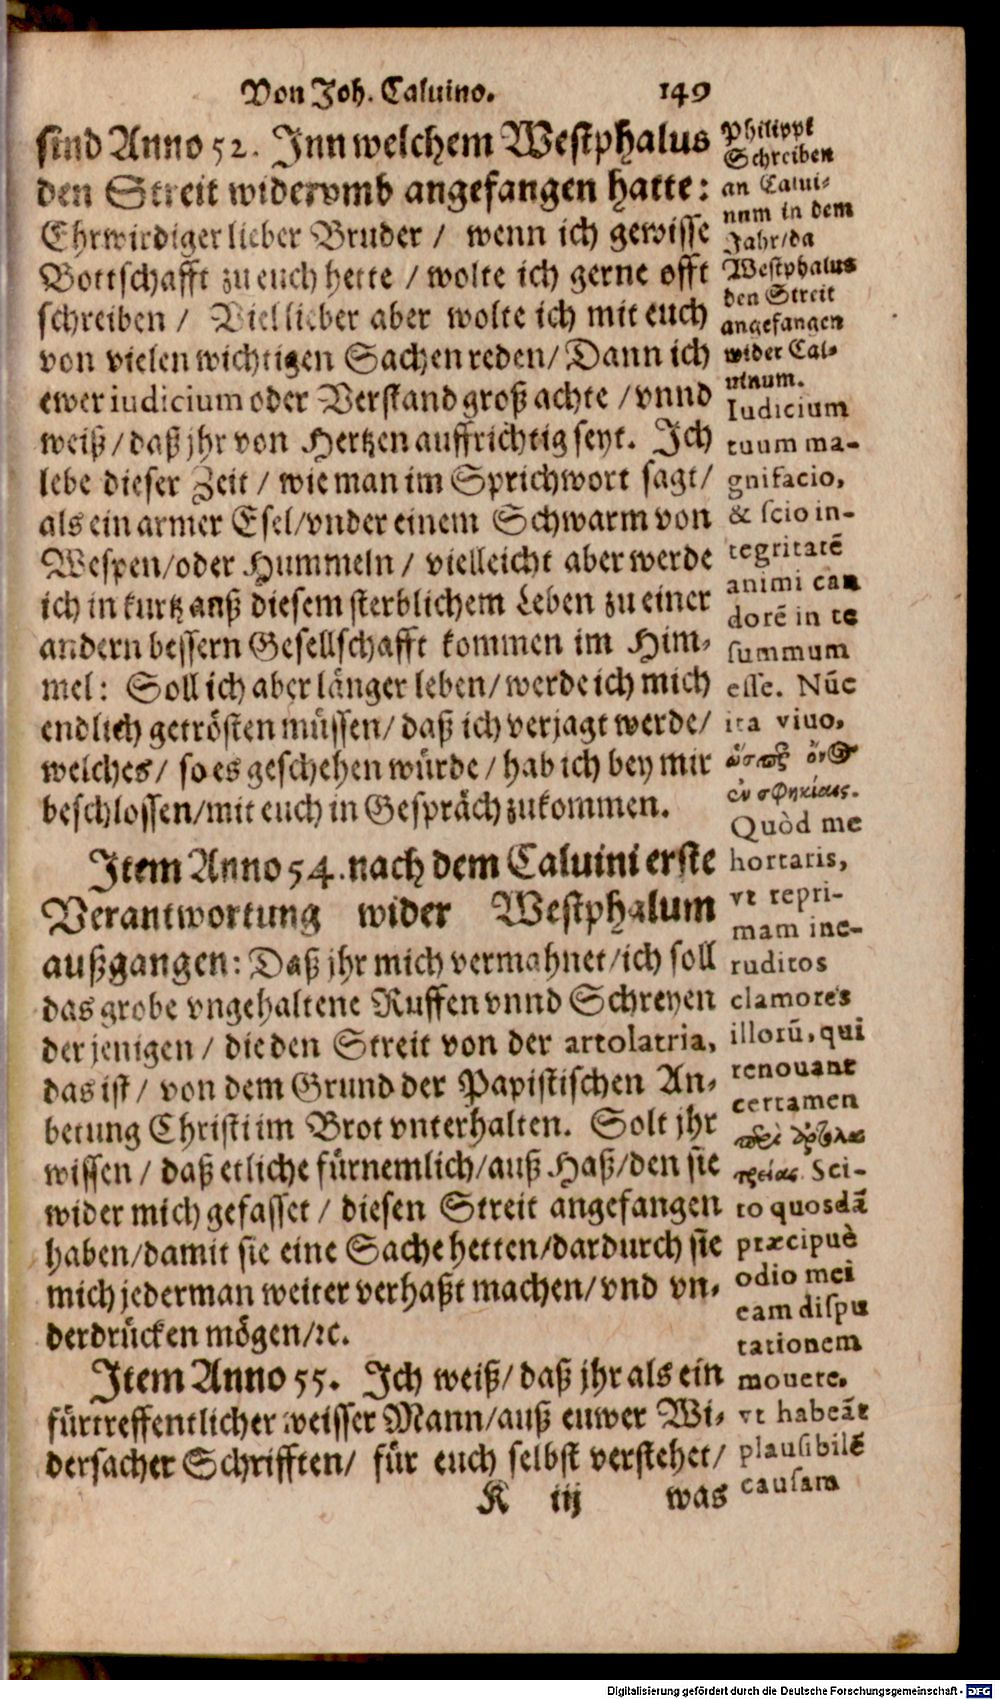 Von Joh. Caluino. 149
sind Anno 52. Jnn welchem Westphalus
den Streit widervmb angefangen hatte:
Ehrwirdiger lieber Bruder / wenn ich gewisse
Bottschafft zu euch hette / wolte ich gerne offt
schreiben / Viel lieber aber wolte ich mit euch
von vielen wichtigen Sachen reden / Dann ich
ewer iudicium oder Verstand groß achte / vnnd
weiß / daß jhr von Hertzen auffrichtig seyt. Jch
lebe dieser Zeit / wie man im Sprichwort sagt /
als ein armer Esel / vnder einem Schwarm von
Wespen / oder Hummeln / vielleicht aber werde
ich in kurtz auß diesem sterblichem Leben zu einer
andern bessern Gesellschafft kommen im Him-
mel: Soll ich aber länger leben / werde ich mich
endlich getrösten müssen / daß ich verjagt werde /
welches / so es geschehen würde / hab ich bey mir
beschlossen / mit euch in Gespräch zukommen.
Jtem Anno 54. nach dem Caluini erste
Verantwortung wider Westphalum
außgangen: Daß jhr mich vermahnet / ich soll
das grobe vngehaltene Ruffen vnnd Schreyen
der jenigen / die den Streit von der artolatria,
das ist / von dem Grund der Papistischen An-
betung Christi im Brot vnterhalten. Solt jhr
wissen / daß etliche fürnemlich / auß Haß / den sie
wider mich gefasset / diesen Streit angefangen
haben / damit sie eine Sache hetten / dardurch sie
mich jederman weiter verhaßt machen / vnd vn-
derdrücken mögen / ꝛc.
Jtem Anno 55. Jch weiß / daß jhr als ein
fürtreffentlicher weisser Mann / auß euwer Wi-
dersacher Schrifften / für euch selbst verstehet /
K iij was
Philippi
Schreiben
an Calui-
num in dem
Jahr / da
Westphalus
den Streit
angefangen
wider Cal-
uinum.
Iudicium
tuum ma-
gnifacio,
& scio in-
tegritatẽ
animi can
dorẽ in te
summum
esse. Nũc
ita viuo,
ὥσπερ ὄνος
ἐν σφηκίαις.
Quòd me
hortaris,
vt repri-
mam ine-
ruditos
clamores
illorũ, qui
renouant
certamen
περὶ ἀρτολα
τρείας. Sci-
to quosdã
præcipuè
odio mei
eam dispu
tationem
mouere,
vt habeãt
plausibilẽ
causam
Digitalisierung gefördert durch die Deutsche Forschungsgemeinschaft - DFG